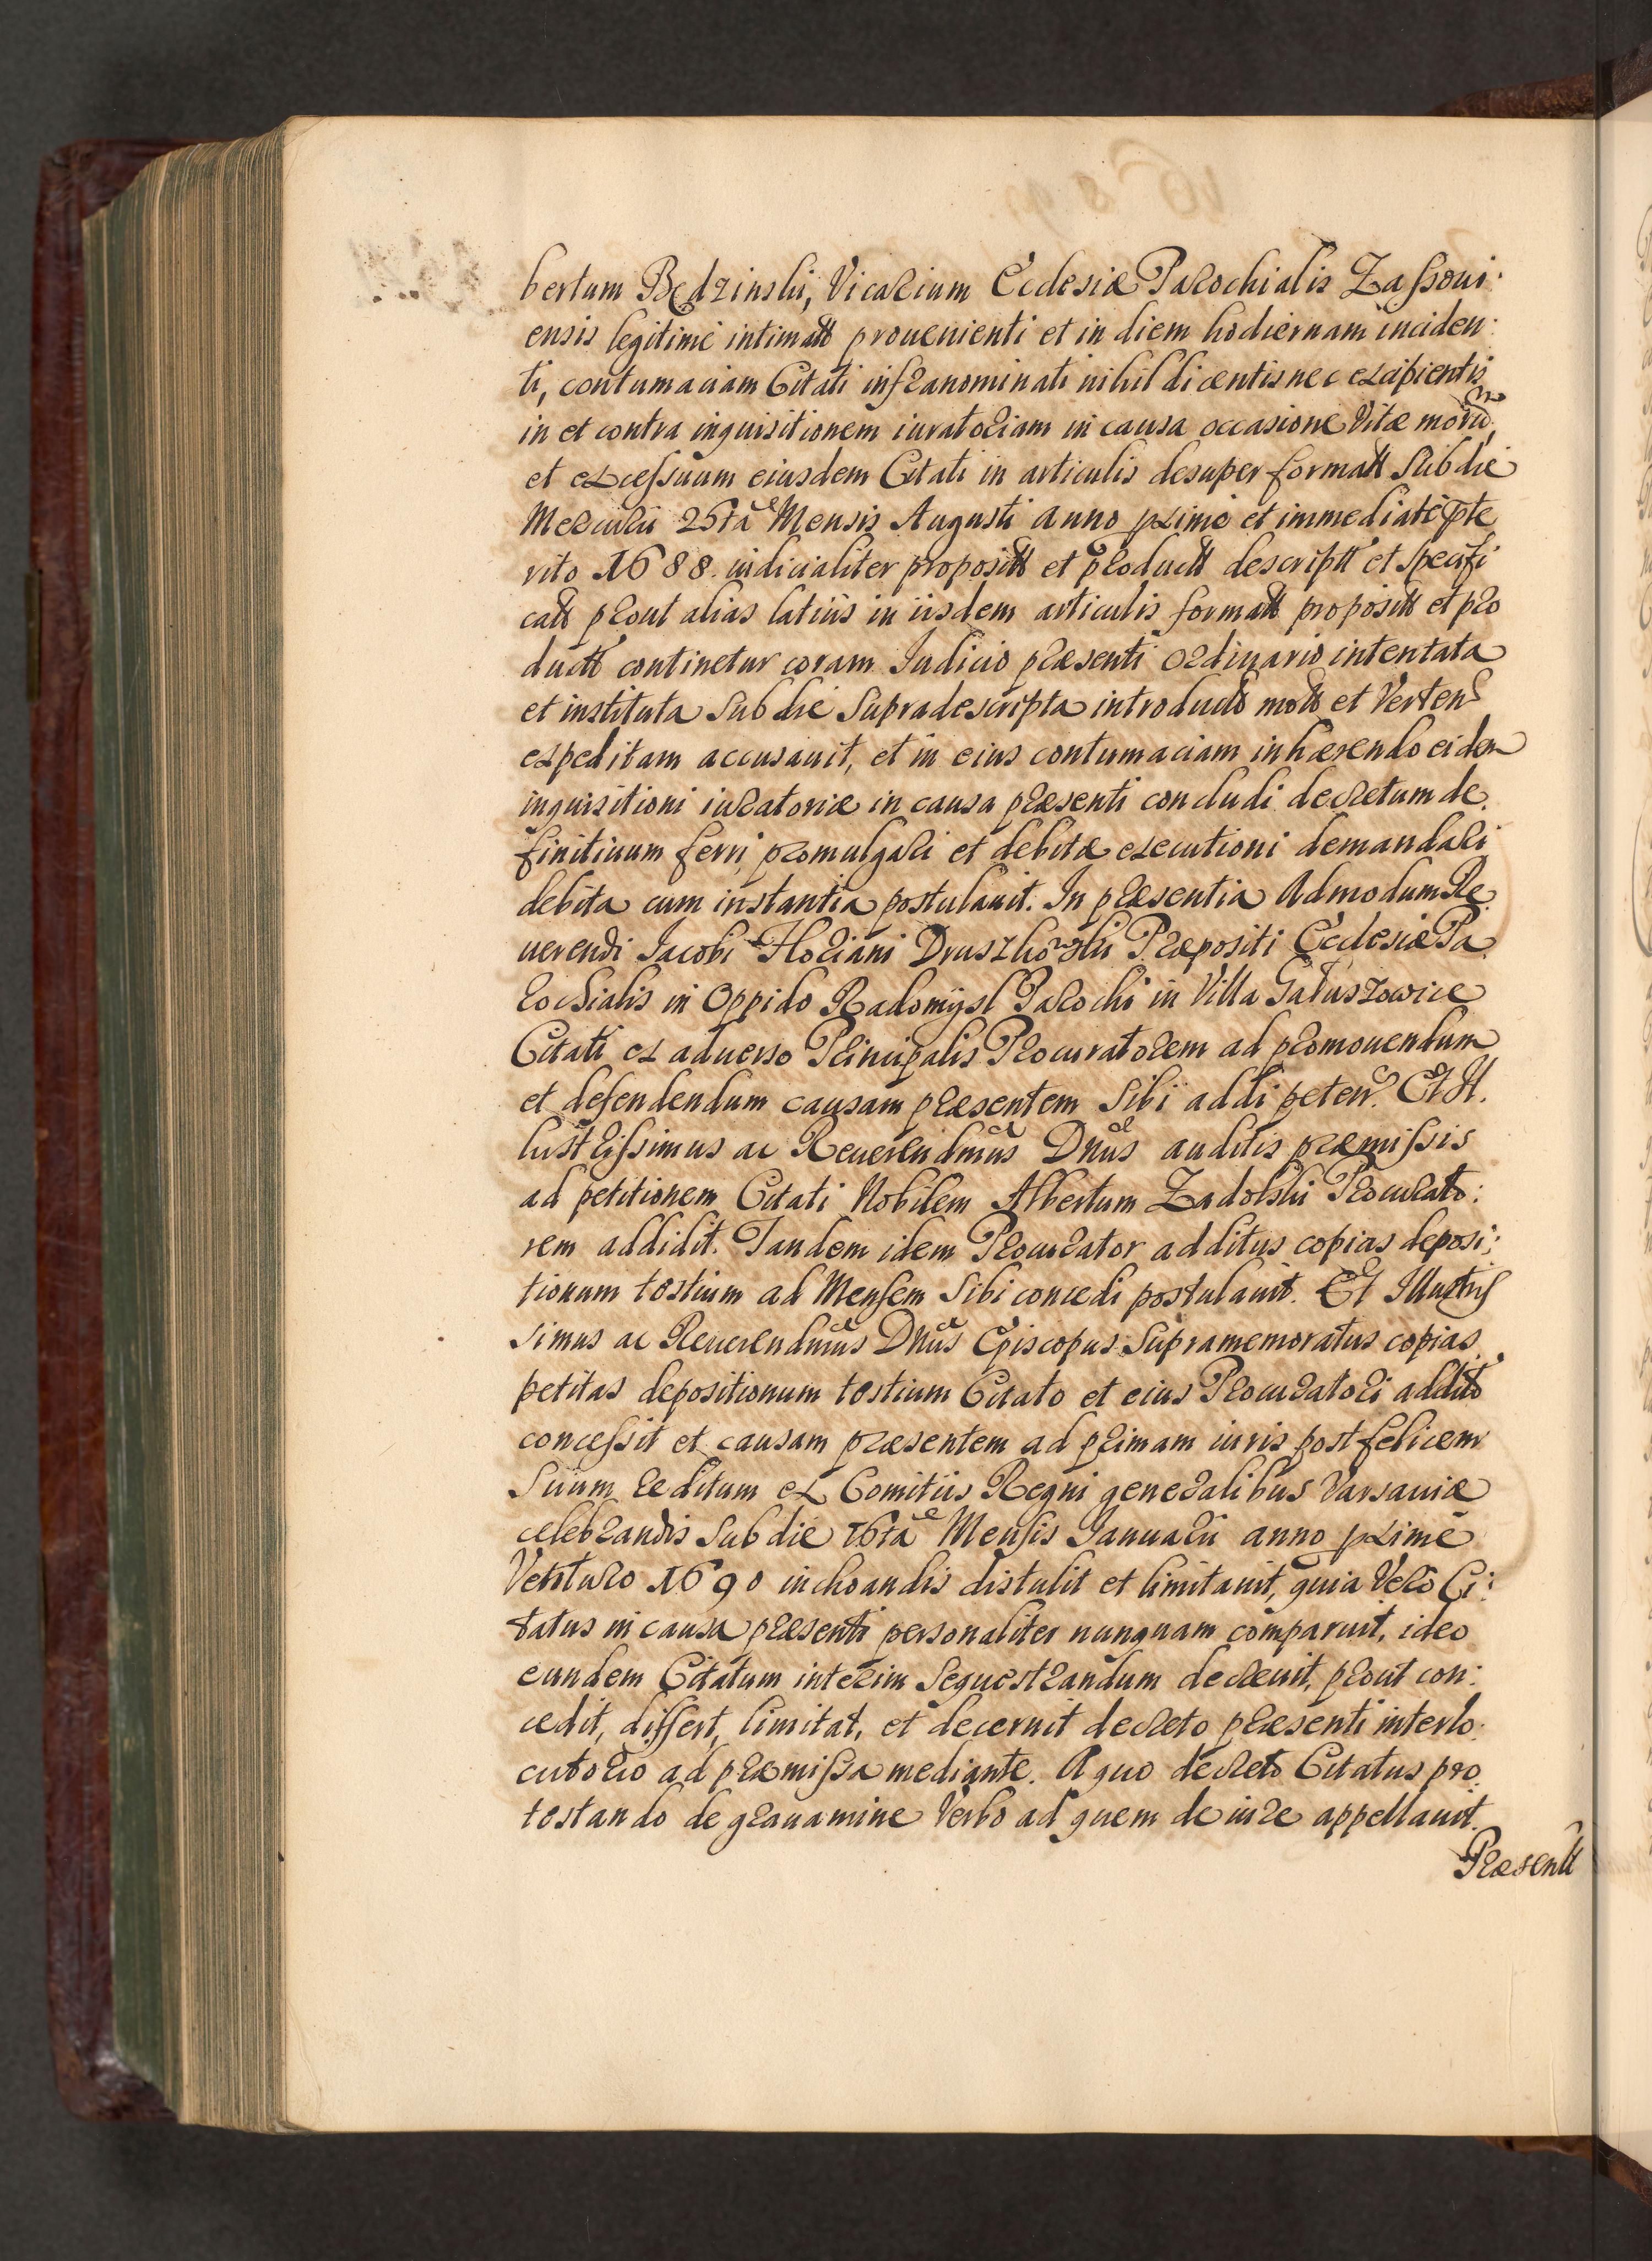 bertum Będzinski, Vicarium Ecclesiæ Parochialis Zassoui:
ensis legitimé intimatt prouenienti et in diem hodiernam inciden:
ti, contumaciam Citati infranominati nihil dicentis nec excipientis
in et contra inquisitionem iuratoriam in causa occasione Vitæ morũ,
et excessuum eiusdem Citati in articulis desuper formatt Sub die
Mercurii 25tâ Mensis Augusti anno proximè et immediatè pꝛte
rito 1688. iudicialiter propositt et productt descriptt et specifi
catt prout alias latiùs in iisdem articulis formatt propositt et pro
ductt continetur coram Iudicio præsenti ordinario intentata
et instituta Sub die Supradescripta introductt mott et Verten
expeditam accusauit, et in eius contumaciam inhærendo eidem
inquisitioni iuratoriæ in causa præsenti concludi decretum de.
finitiuum ferri promulgari et debitæ executioni demandari
debita cum instantia postulauit. In præsentia Admodum Re.
uerendi Jacobi Floriani Druszkowski Præpositi Ecclesiæ Pa.
rochialis in Oppido Radomÿsl Parochi in Villa Gałuszowice
Citati ex aduerso Principalis Procuratorem ad promouendum
et defendendum causam præsentem Sibi addi peten. Et Il.
lustrissimus ac Reuerendmus Dnus auditis præmissis
ad petitionem Citati Nobilem Albertum Zadolski Procurato:
rem addidit. Tandem idem Procurator additus copias deposi:
tionum testium ad Mensem Sibi concedi postulauit. Et Illustris
simus ac Reuerendmus Dnus Episcopus Supramemoratus copias
petitas depositionum testium Citato et eius Procuratori addito
concessit et causam præsentem ad primam iuris post felicem
Suum reditum ex Comitiis Regni generalibus Varsauiæ
celebrandis Sub die 16tâ Mensis Januarii anno proximè
Venturo 1690 inchoandis distulit et limitauit, quia Verò Ci:
tatus in causa præsenti personaliter nunquam comparuit, ideo
eundem Citatum interim Sequestrandum decreuit, prout con:
cedit, differt, limitat, et decernit decreto præsenti interlo.
cutorio ad præmissa mediante. A quo decreto Citatus pro.
testando de grauamine Verbo ad quem de iure appellauit.
Præsentt